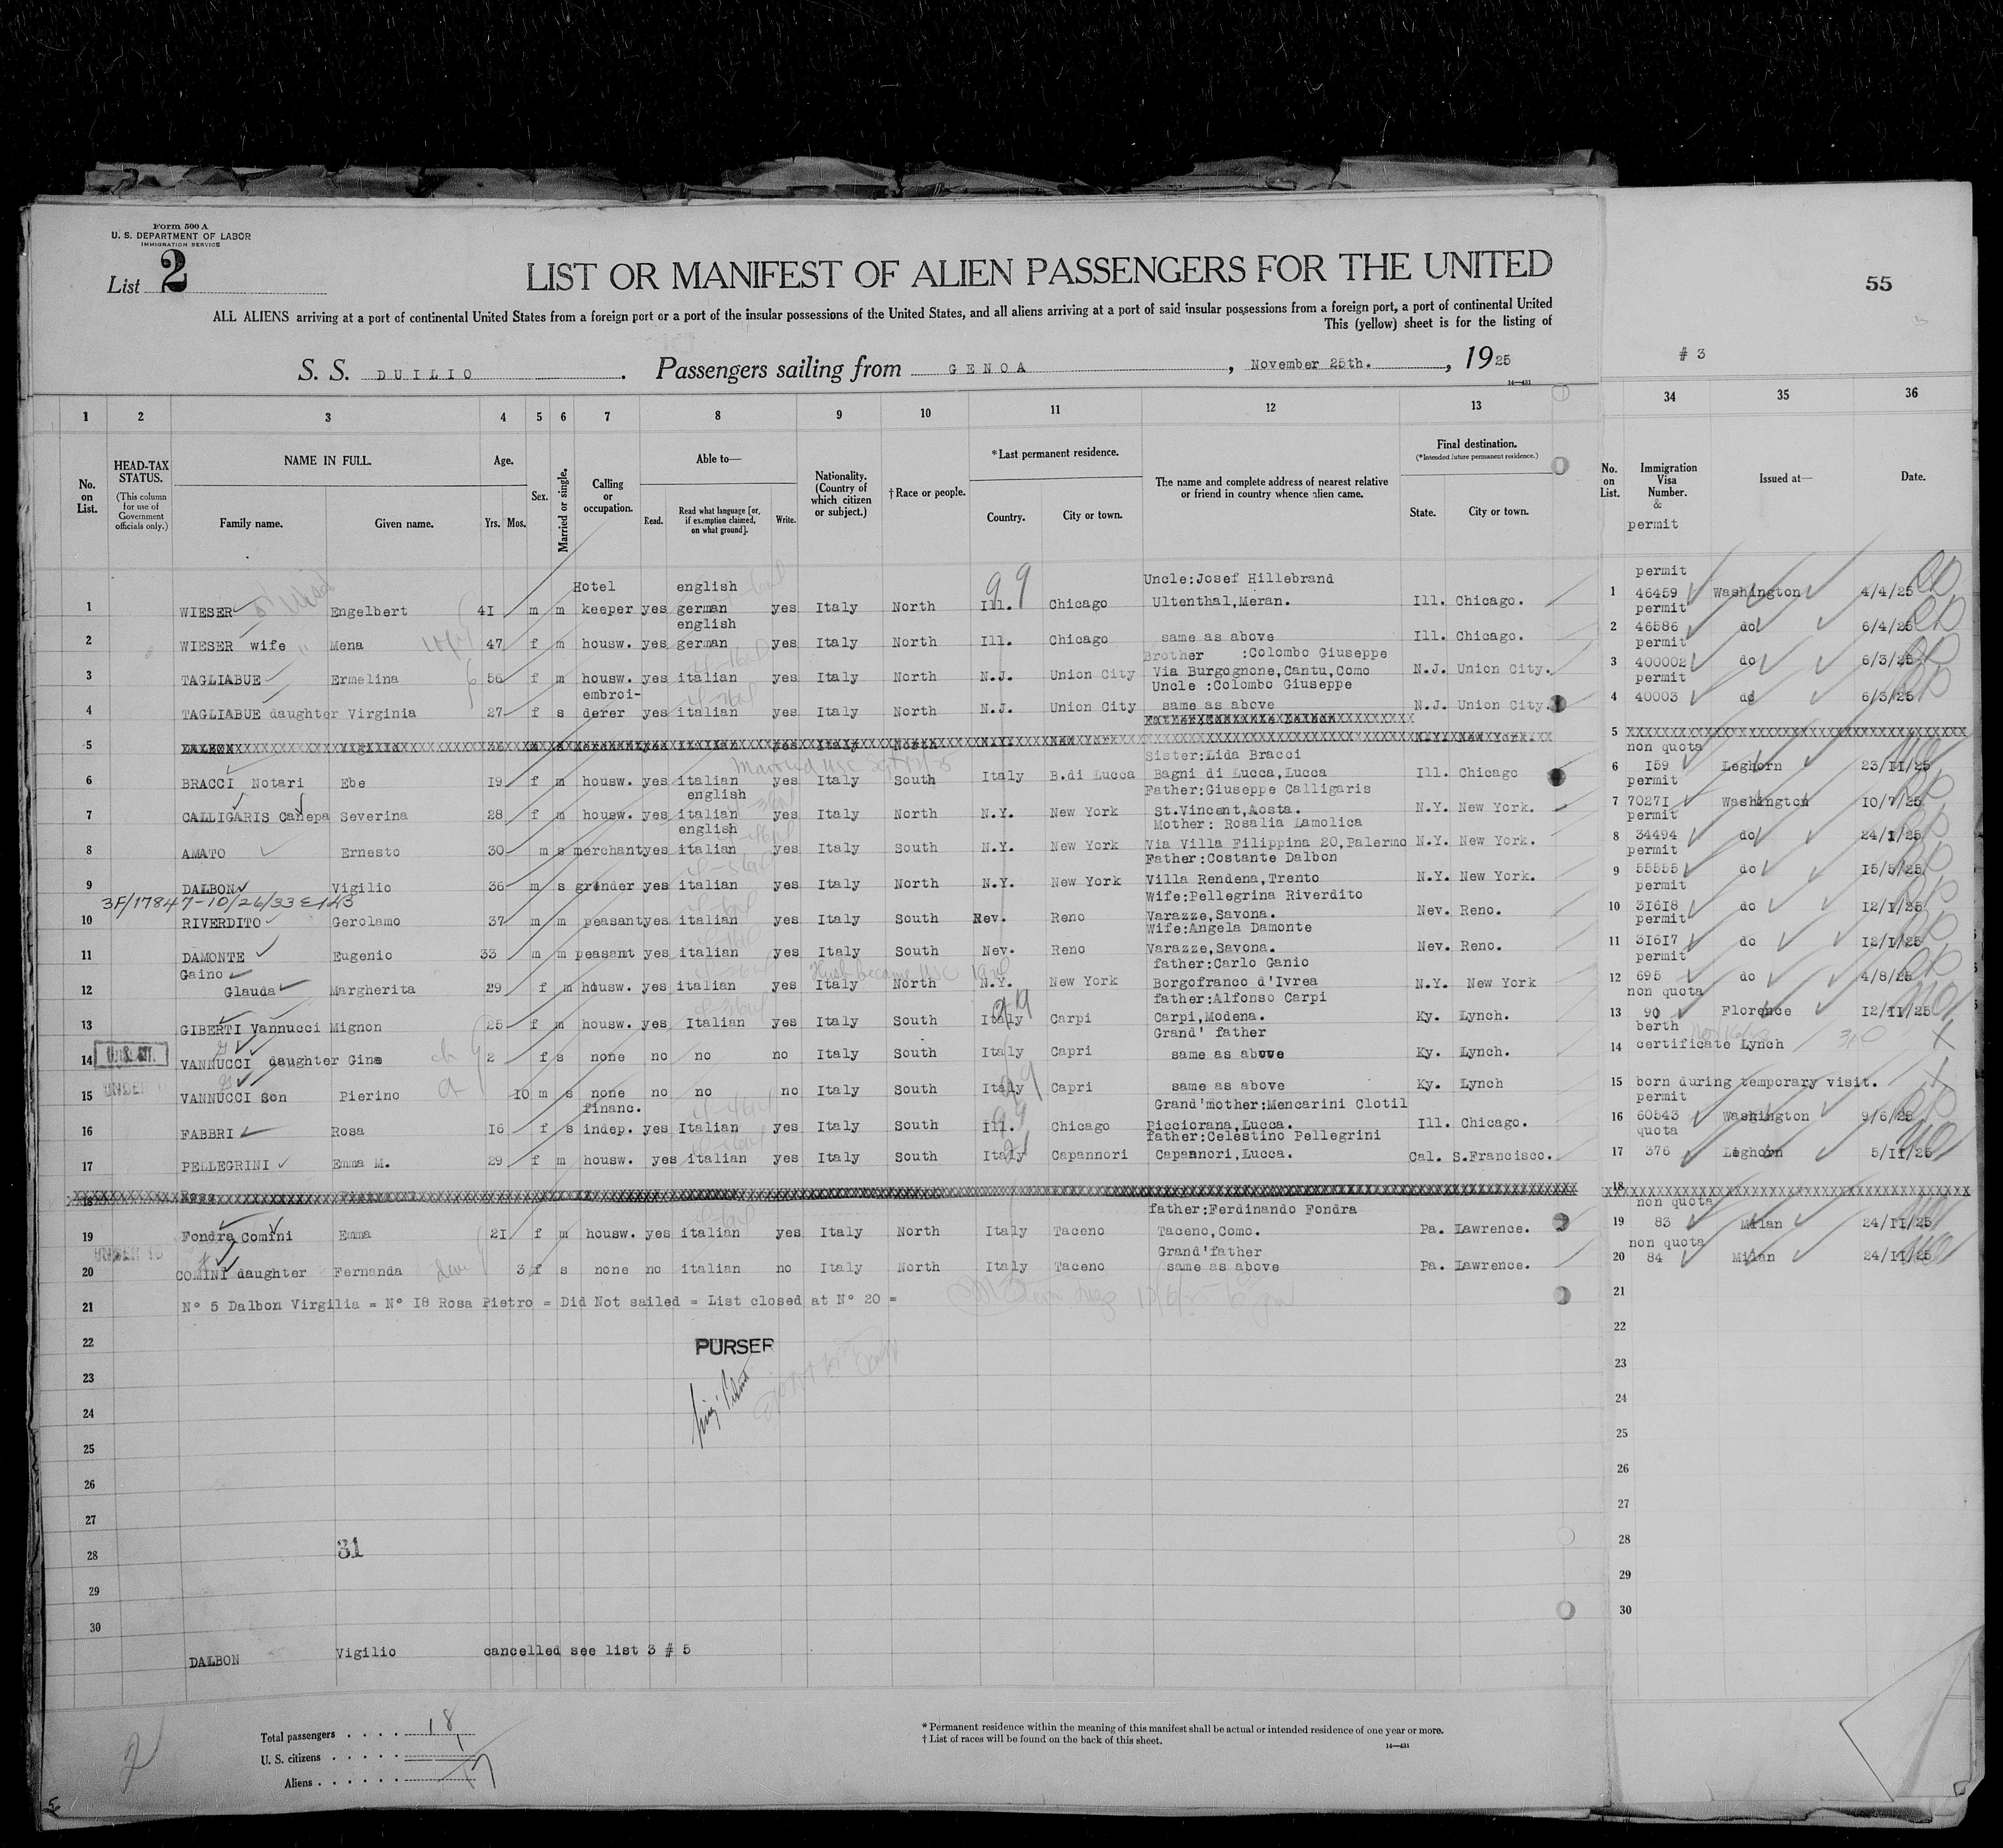 Form 500 A
U. S. DEPARTMENT OF LABOR
IMMIGRATION SERVICE
List 2
LIST OR MANIFEST OF ALIEN PASSENGERS FOR THE UNITED
55
ALL ALIENS arriving at a port of continental United States from a foreign port or a port of the insular possessions of the United States, and all aliens arriving at a port of said insular possessions from a foreign port, a port of continental United
This (yellow) sheet is for the listing of
# 3
S. S. DUILIO. Passengers sailing from GENOA, November 25th., 1925
14—431
1 2 3 4 5 6 7 8 9 10 11 12 13 34 35 36
No. on List.
HEAD-TAX STATUS.
(This column for use of Government officials only.)
NAME IN FULL.
Family name. Given name.
Age.
Yrs. Mos.
Sex.
Married or single.
Calling or occupation.
Able to—
Read. Read what language [or, if exemption claimed, on what ground]. Write.
Nationality. (Country of which citizen or subject.)
† Race or people.
* Last permanent residence.
Country. City or town.
The name and complete address of nearest relative or friend in country whence alien came.
Final destination.
(* Intended future permanent residence.)
State. City or town.
No. on List.
Immigration Visa Number. & permit
Issued at—
Date.
Hotel english Uncle:Josef Hillebrand permit
1 WIESER Engelbert 4I m m keeper yes german yes Italy North Ill. Chicago Ultenthal,Meran. Ill. Chicago. 1 46459 Washington 4/4/25
english permit
2 WIESER wife Mena 47 f m housw. yes german yes Italy North Ill. Chicago same as above Ill. Chicago. 2 46586 do 6/4/25
Brother :Colombo Giuseppe permit
3 TAGLIABUE Ermelina 56 f m housw. yes italian yes Italy North N.J. Union City Via Burgognone,Cantu,Como N.J. Union City. 3 400002 do 6/3/25
embroi- Uncle :Colombo Giuseppe permit
4 TAGLIABUE daughter Virginia 27 f s derer yes italian yes Italy North N.J. Union City same as above N.J. Union City. 4 40003 do 6/3/25
5 DALBON Vigilio Italy North N.Y. New York N.Y. New York. 5 XXXXXXXXXXXXXXXXXXXXXXXXXXXXXXXXXXXX
Married USC Sept Sister:Lida Bracci non quota
6 BRACCI Notari Ebe I9 f m housw. yes italian yes Italy South Italy B.di Lucca Bagni di Lucca,Lucca Ill. Chicago 6 I59 Leghorn 23/II/25
english Father:Giuseppe Calligaris permit
7 CALLIGARIS Canepa Severina 28 f m housw. yes italian yes Italy North N.Y. New York St.Vincent,Aosta. N.Y. New York. 7 7027I Washington I0/7/25
english Mother: Rosalia Lamolica permit
8 AMATO Ernesto 30 m s merchant yes italian yes Italy South N.Y. New York Via Villa Filippina 20,Palermo N.Y. New York. 8 34494 do 24/I/25
Father:Costante Dalbon permit
9 DALBON Vigilio 36 m s grinder yes italian yes Italy North N.Y. New York Villa Rendena,Trento N.Y. New York. 9 55555 do I5/5/25
3F/17847-10/26/33 Wife:Pellegrina Riverdito permit
10 RIVERDITO Gerolamo 37 m m peasant yes italian yes Italy South Nev. Reno Varazze,Savona. Nev. Reno. 10 3I6I8 do I2/I/25
Wife:Angela Damonte permit
11 DAMONTE Eugenio 33 m m peasant yes italian yes Italy South Nev. Reno Varazze,Savona. Nev. Reno. 11 3I6I7 do I2/I/25
Gaino Husb became USC father:Carlo Ganio permit
12 Glauda Margherita 29 f m housw. yes italian yes Italy North N.Y. New York Borgofranco d'Ivrea N.Y. New York 12 695 do 4/8/25
father:Alfonso Carpi non quota
13 GIBERTI Vannucci Mignon 25 f m housw. yes Italian yes Italy South Italy Carpi Carpi,Modena. Ky. Lynch. 13 90 Florence I2/II/25
Grand' father berth
14 VANNUCCI daughter Gina 2 f s none no no no Italy South Italy Capri same as above Ky. Lynch. 14 certificate Lynch
UNDER
15 VANNUCCI Son Pierino I0 m s none no no no Italy South Italy Capri same as above Ky. Lynch 15 born during temporary visit.
financ. Grand'mother:Mencarini Clotil permit
16 FABBRI Rosa I6 f s indep. yes Italian yes Italy South Ill. Chicago Picciorana,Lucca. Ill. Chicago. 16 60543 Washington 9/6/25
father:Celestino Pellegrini quota
17 PELLEGRINI Emma M. 29 f m housw. yes italian yes Italy South Italy Capannori Capannori,Lucca. Cal. S.Francisco. 17 376 Leghorn 5/II/25
18 Rosa 18 XXXXXXXXXXXXXXXXXXXXXXXXXXXXXXXXXXXX
father:Ferdinando Fondra non quota
19 Fondra Comini Emma 2I f m housw. yes italian yes Italy North Italy Taceno Taceno,Como. Pa. Lawrence. 19 83 Milan 24/II/25
UNDER 16 Grand'father non quota
20 COMINI daughter Fernanda 3 f s none no italian no Italy North Italy Taceno same as above Pa. Lawrence. 20 84 Milan 24/II/25
21 N° 5 Dalbon Virgilia = N° I8 Rosa Pietro = Did Not sailed = List closed at N° 20 = 21
22 PURSER 22
23 23
24 24
25 25
26 26
27 27
28 31 28
29 29
30 30
DALBON Vigilio cancelled see list 3 # 5
2
Total passengers . . . . 18
U. S. citizens . . . . . 1
Aliens . . . . . . 17
* Permanent residence within the meaning of this manifest shall be actual or intended residence of one year or more.
† List of races will be found on the back of this sheet.
14—431